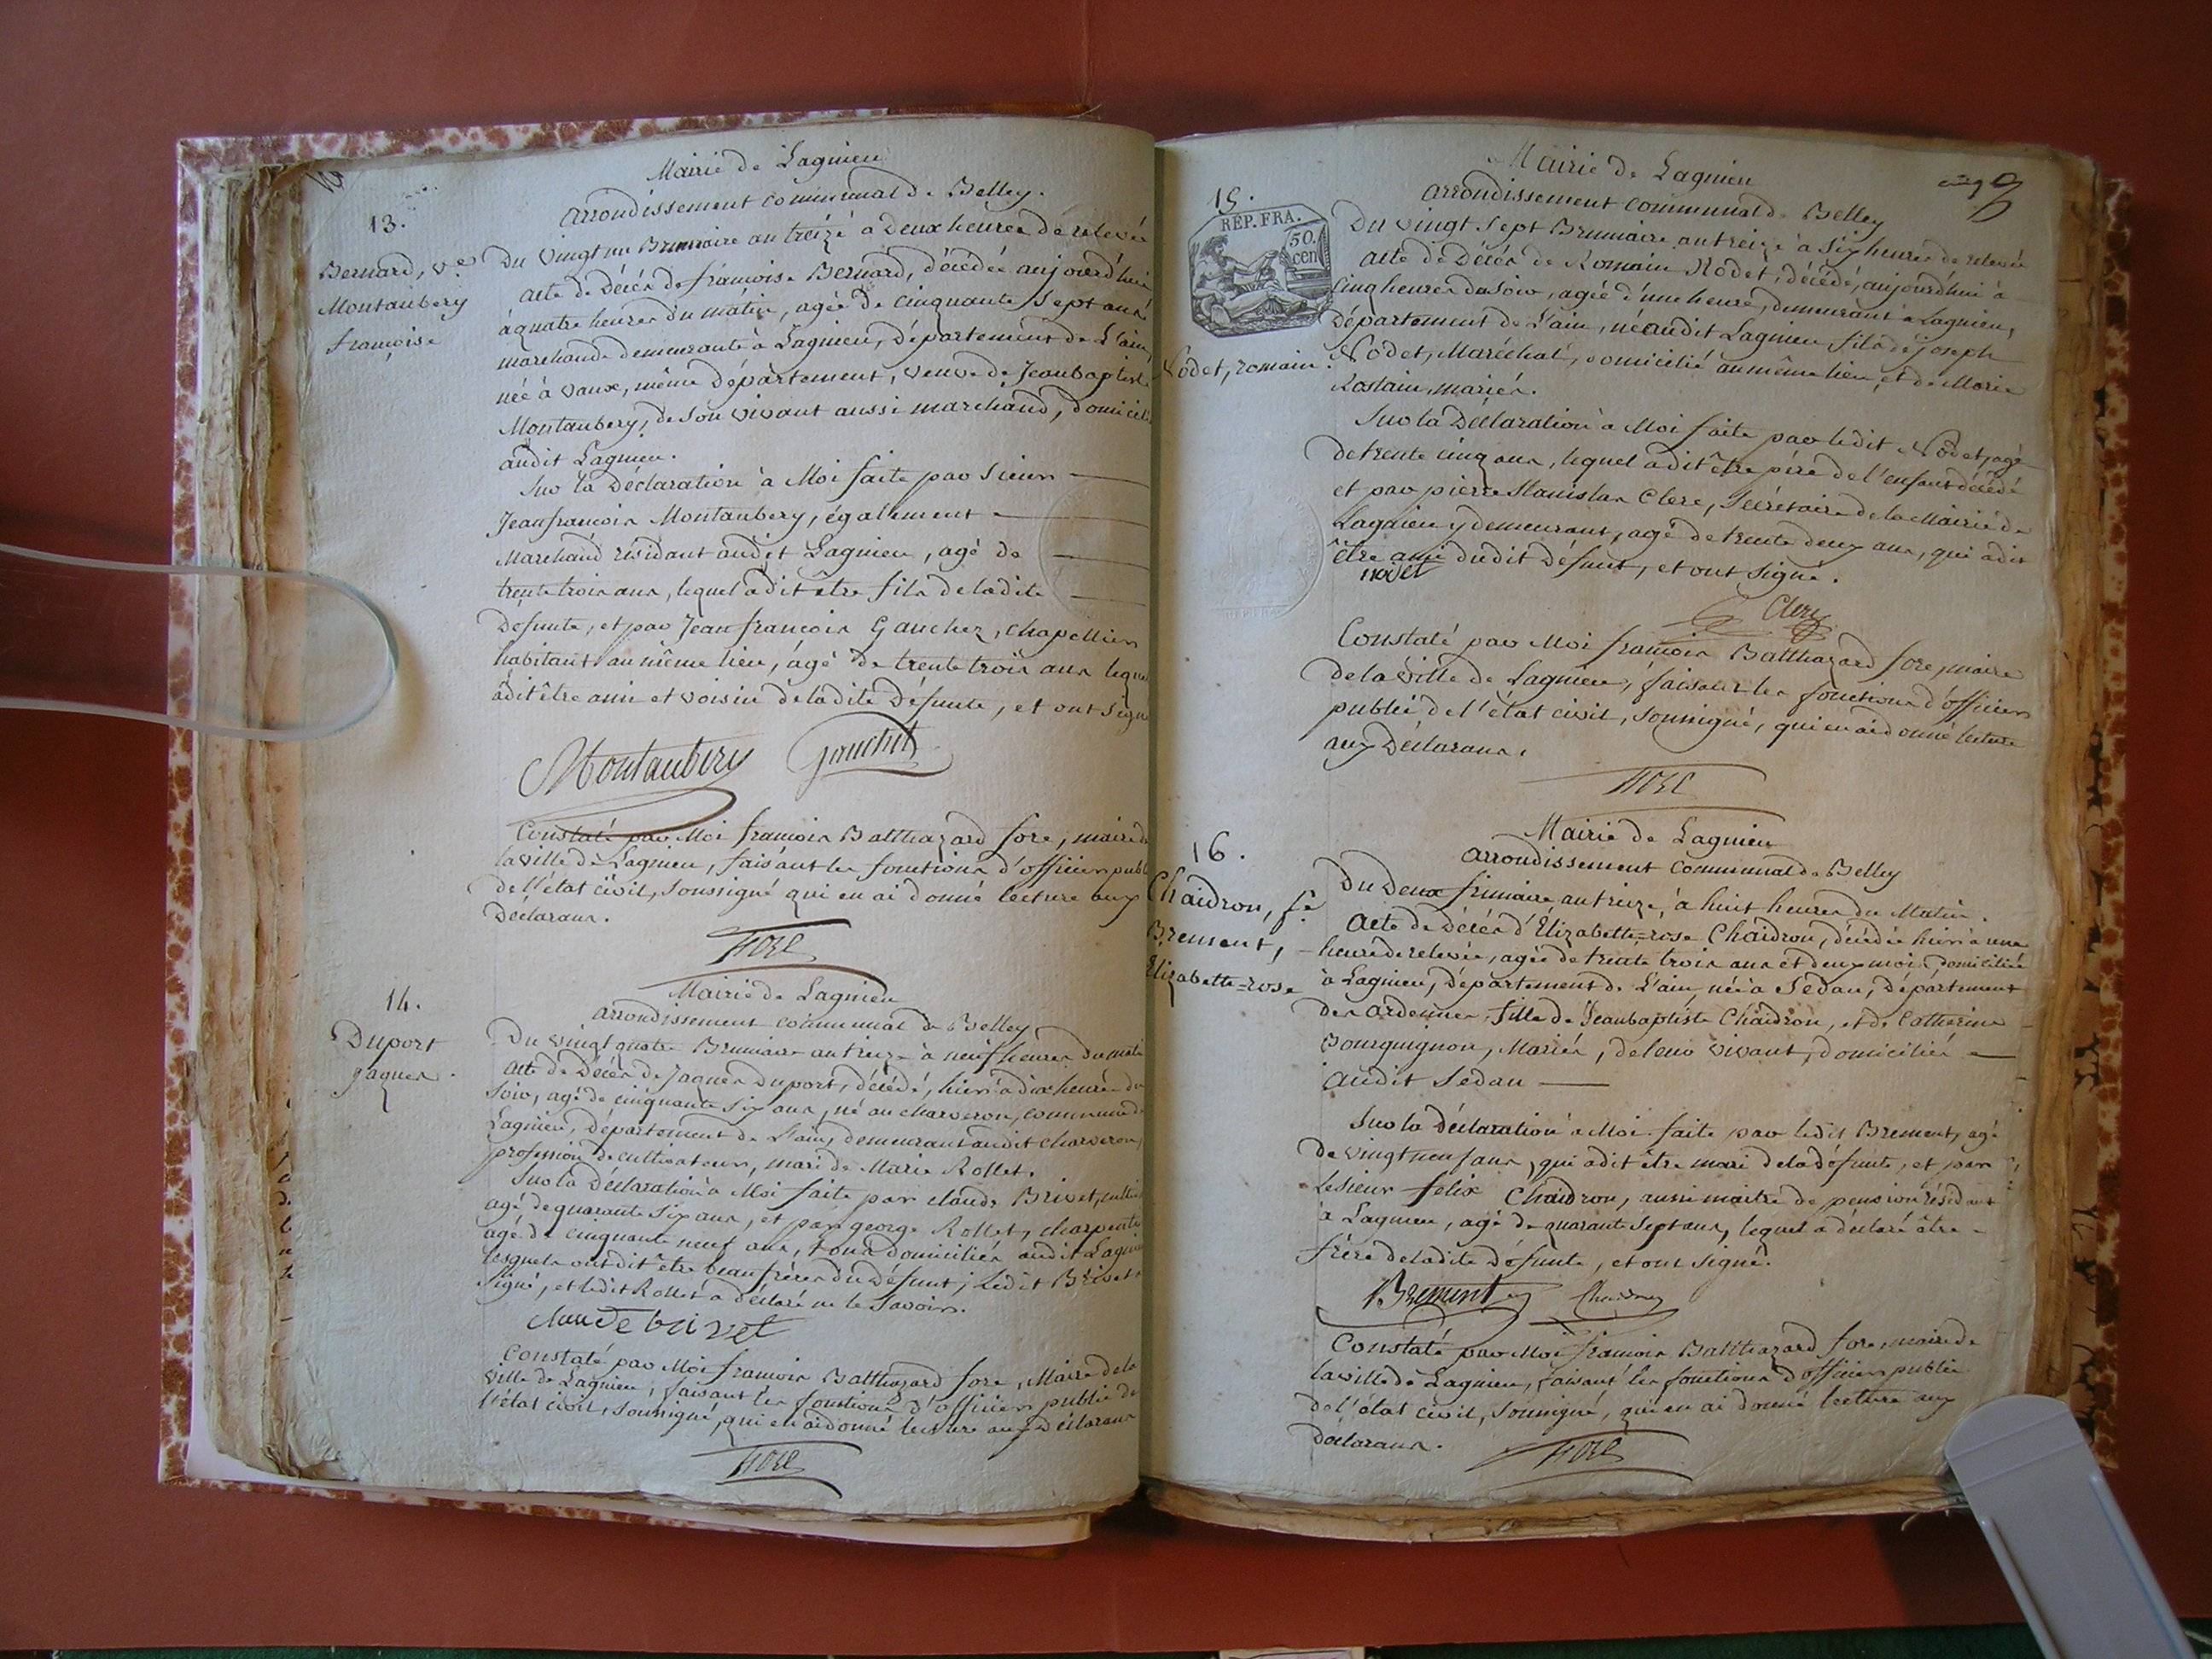 Mairie de Lagnieu
arrondissement communal de Belley.
13.
Bernard, ve
Montaubery
françoise
Du vingt un Brumaire an treizé à Deux heures de relevée
acte de Décès de françoise Bernard, décédée aujourd'hui
à quatre heures du matin, agée de cinquante sept ans
marchande demeurante à Lagnieu, Département de L'ain,
née à vaux, même Département, veuve de Jeanbaptiste
Montaubery, de son vivant aussi marchand, domicilié
audit Lagnieu.
Sur la Déclaration à Moi faite par Sieur
Jeanfrançois Montaubery, également
Marchand résidant audit Lagnieu, agé de
trente trois ans, lequel a dit être fils de ladite
Défunte, et par Jean françois Gauchez, chapellier
habitant au même lieu, âgé de trente trois ans lequel
a dit être ami et voisin de ladite Défunte, et ont signé
Montaubery Gauchet
Constaté par Moi françois Balthazard fore, maire de
la ville de Lagnieu, faisant les fonctions d'officier publ
de l'état civil, Soussigné qui en ai donné lecture aux
Déclarans.
Fore
Mairie de Lagnieu
arrondissement communal de Belley
14.
Duport
jaques.
Du vingt quatre Brumaire an treize à neuf heures du matin
acte de Décès de Jaques Duport, décédé, hier à dix heures du
soir, agé de cinquante six ans, né au charveron, commune de
Lagnieu, Département de L'ain, demeurant audit charveron,
profession de cultivateur, mari de Marie Rollet.
Sur la Déclaration à Moi faite par claude Brivet, cultiv
agé de quarante six ans, et par george Rollet, charpentier
agé de cinquante neuf ans, tous domiciliés audit Lagnieu
lesquels ont dit être beaufrères du Défunt, Ledit Brivet a
signé, et ledit Rollet a déclaré ne le savoir.
claude brivet
Constaté par Moi françois Balthazard fore, Maire de la
ville de Lagnieu, faisant les fonctions d'officier public de
l'état civil, soussigné, qui en ai donné lecture aux Déclarans
Fore
Mairie de Lagnieu
arrondissement communal de Belley
15.
RÉP. FRA.
50.
cen
Nodet, romain.
Du vingt sept Brumaire an treize à six heures de relevée
acte de Décès de Romain Nodet, décédé, aujourd'hui à
cinq heures du soir, agée d'une heure, demeurant à Lagnieu,
Département de L'ain, né audit Lagnieu, fils de joseph
Nodet, Maréchal, domicilié au même lieu, et de Marie
Rostain, mariés.
Sur la Déclaration à Moi faite par ledit Nodet, agé
de trente cinq ans, lequel a dit être père de l'enfant décédé
et par pierre Stanislas Clerc, Secrétaire de la Mairie de
Lagnieu y demeurant, agé de trente deux ans, qui a dit
être ami dudit défunt, et ont signé.
nodet
Clerc
Constaté par Moi françois Balthazard fore, maire
de la ville de Lagnieu, faisant les fonctions d'officier
public de l'état civil, Soussigné, qui en ai donné lecture
aux Déclarans.
Fore
Mairie de Lagnieu
arrondissement communal de Belley
16.
Chaidron, fe
Brement,
Elizabette=rose
Du Deux frimaire an treize, à huit heures du Matin.
Acte de Décès d'Elizabette=rose Chaidron, décédée hier à une
heure de relevée, agée de trente trois ans et deux mois, domiciliée
à Lagnieu, département de L'ain, née à Sedan, Département
des ardennes, fille de Jeanbaptiste Chaidron, et de Catherine
Bourguignon, Mariés, de leur vivant, domiciliés
audit Sedan
Sur la déclaration à Moi faite par ledit Brement, agé
de vingt neuf ans, qui a dit être mari de la défunte, et par
Le sieur felix Chaidron, aussi maitre de pension résidant
à Lagnieu, agé de quarante sept ans, lequel a déclaré être
frère de ladite défunte, et ont signé.
Brement Chaidron
Constaté par Moi françois Balthazard fore, maire de
la ville de Lagnieu, faisant les fonctions d'officier public
de l'état civil, soussigné, qui en ai donné lecture aux
déclarans.
Fore